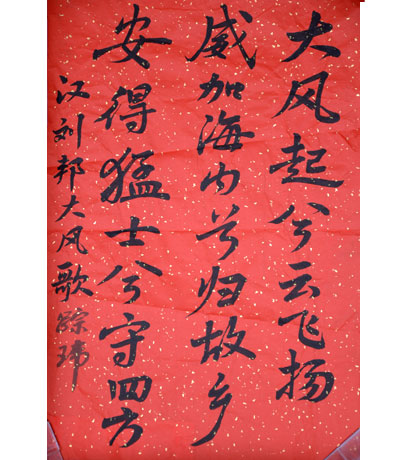 大风起兮云飞扬
威加海内兮归故乡
安得猛士兮守四方
汉刘邦大风歌 踪玮